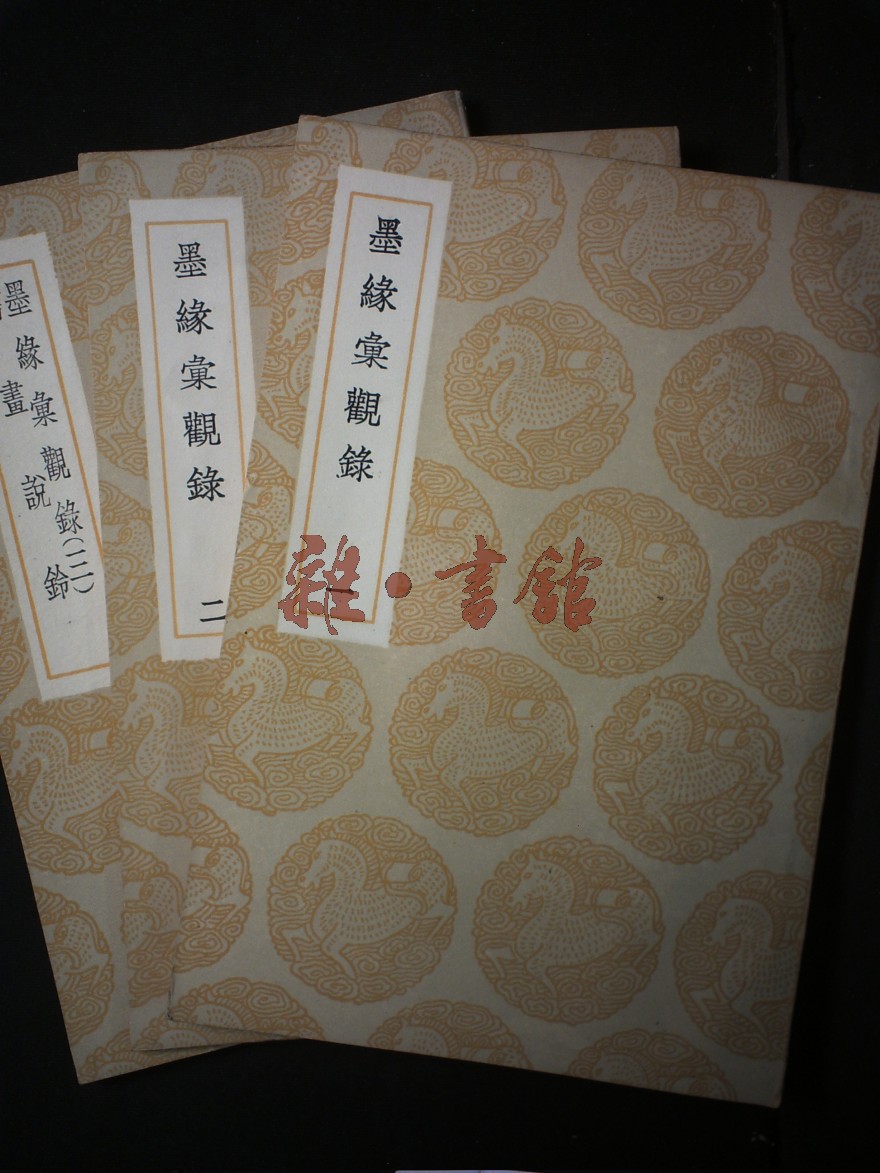 墨緣彙觀錄
一
墨緣彙觀錄
二
墨緣彙觀錄(三)
畫說鈴
雜·書館